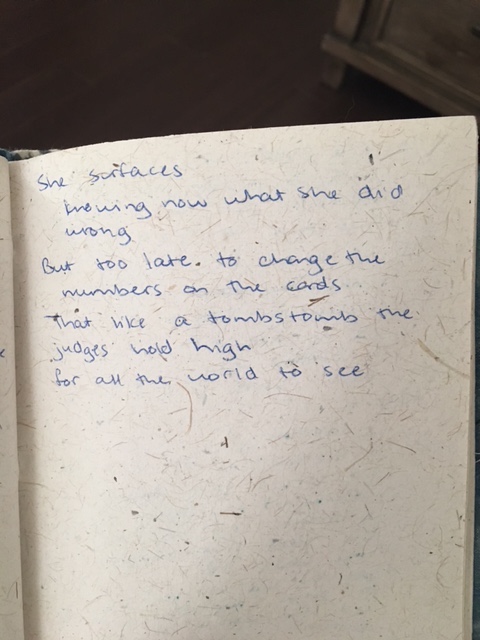 She surfaces
knowing now what she did
wrong
But too late to change the
numbers on the cards
That like a tombstomb the
judges hold high
for all the world to see